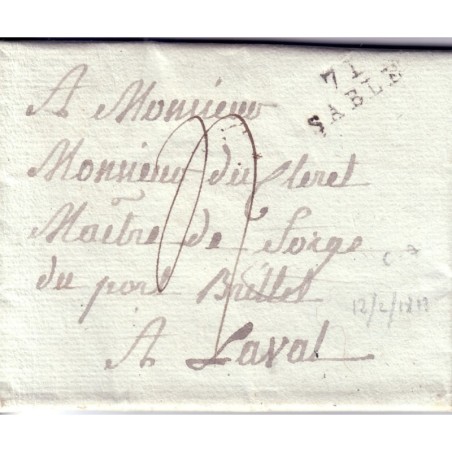 71
SABLÉ
A Monsieur
Monsieur du
Maitre de forge
du port Brillet
12/2/18
A Laval